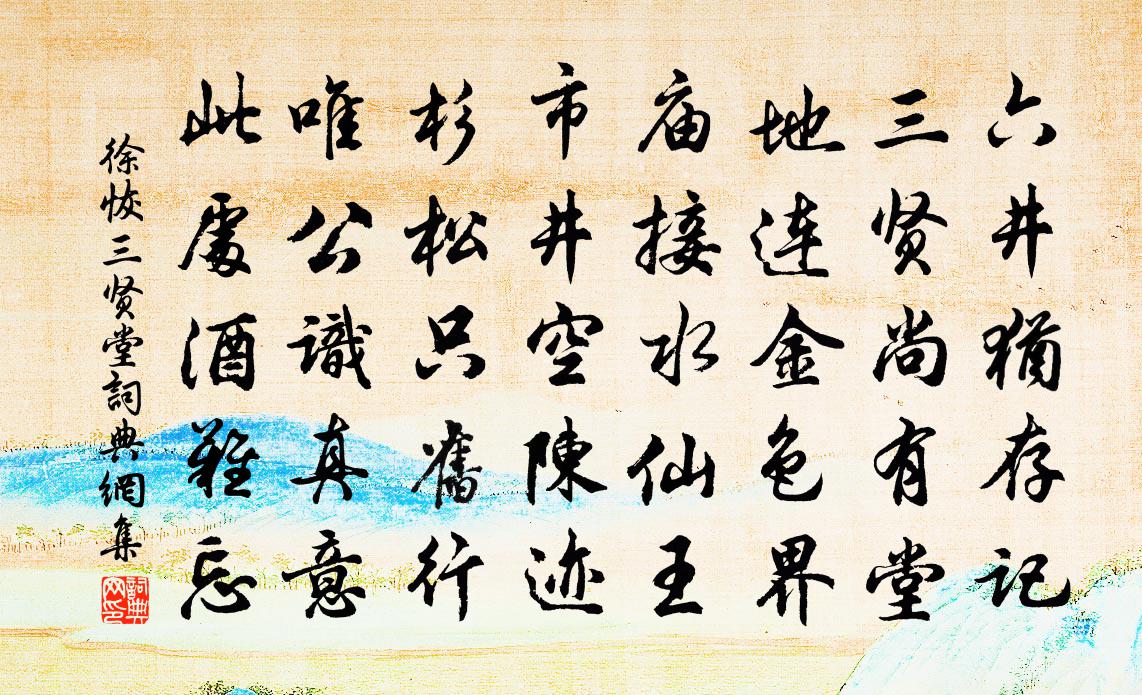 六井猶存記
三贤尚有堂
地连金色界
庙接水仙王
市井空陳迹
杉松只舊行
唯公識真意
此處酒難忘
徐恢三贤堂詞典網集
詞典
网印